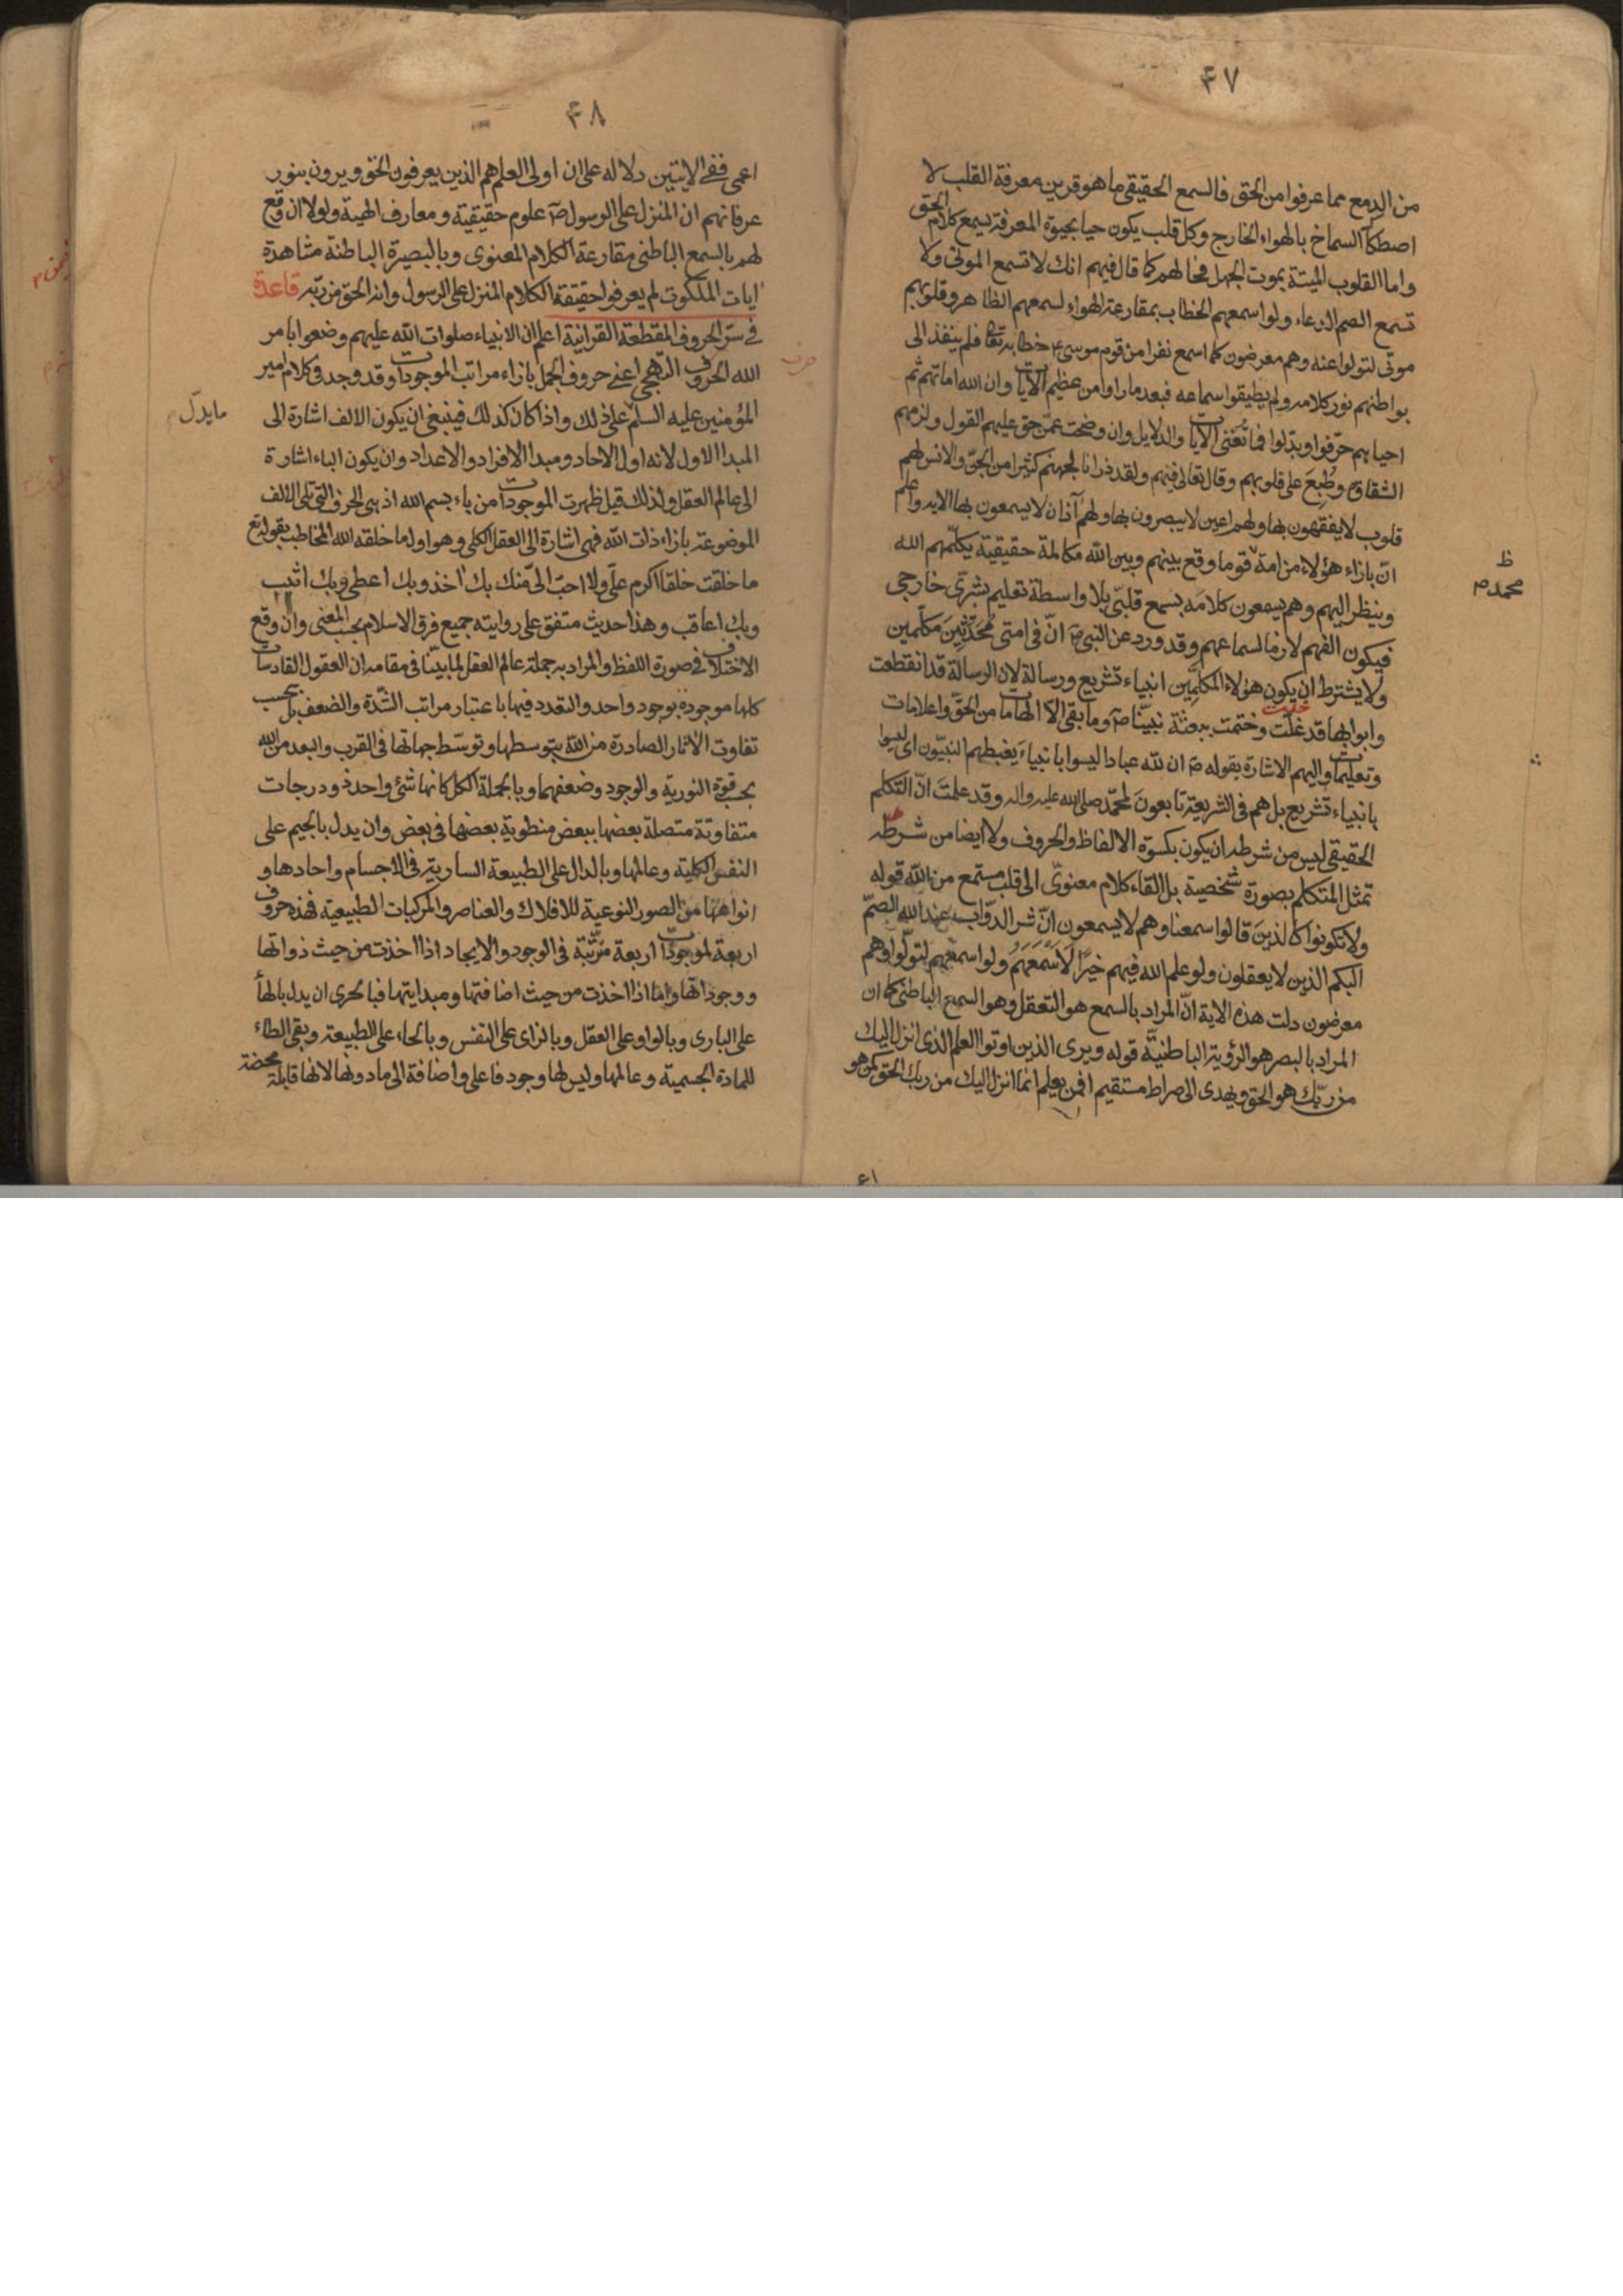 ۴۷
من الدمع مما عرفوا من الحق فالسمع الحقيقى ما هو قرين معرفة القلب لا
اصطكاك السماخ بالهواء الخارج وكل قلب يكون حيا بحيوة المعرفة يسمع كلام الحق
واما القلوب الميتة بموت الجهل فحالهم كما قال فيهم انك لا تسمع الموتى ولا
تسمع الصم الدعاء ولو اسمعهم الخطاب بمقارعة الهواء لسمعهم الظاهر وقلوبهم
موتى لتولوا عنه وهم معرضون كما اسمع نفرا من قوم موسى ع خطابه تعا فلم ينفذ الى
بواطنهم نور كلامه ولم يطيقوا سماعه فبعد ما راوا من عظيم الآيات وان الله اماتهم ثم
احياهم حرّفوا وبدّلوا فما تُغنى الآيات والدلايل وان وضحت عمّن حق عليهم القول ولزمهم
الشقاق وطُبِعَ على قلوبهم وقال تعالى فيهم ولقد ذرانا لجهنم كثيرا من الجنّ والانس لهم
قلوب لا يفقهون بها ولهم اعين لا يبصرون بها ولهم آذان لا يسمعون بها الايه واعلم
انّ بازاء هؤلاء من امة قوما وقع بينهم وبين الله مكالمة حقيقية يكلّمهم الله
ظ
محمد ص
وينظر اليهم وهم يسمعون كلامَه بسمع قلبّى بلا واسطة تعليم بشرىّ خارجى
فيكون الفهم لازما لسماعهم وقد ورد عن النبى ص انّ فى امتى مُحَدَّثِينَ مكلَّمين
ولا يشترط ان يكون هؤلاء المكلَّمِين انبياء تشريع ورسالة لان الرسالة قد انقطعت
وابوابها قد غلّت وختمت ببعثة نبيّنا ص وما بقى الا الهامات من الحقّ واعلامات
وتعليمات واليهم الاشارة بقوله ص ان لله عبادا ليسوا بانبياءَ يغبطهم النبيّون اى ليسوا
بانبياء تشريع بل هم فى الشريعة تابعونَ لمحمّد صلى الله عليه واله وقد علمتَ انّ التكلم
الحقيقى ليس من شرطه ان يكون بكسوة الالفاظ والحروف ولا ايضا من شرطه
تمثل المتكلم بصورة شخصية بل القاء كلام معنوىّ الى قلب مستمع من الله قوله
ولا تكونوا كالذينَ قالوا سمعنا وهم لا يسمعون انّ شر الدوّاب عند الله الصمّ
البكم الذين لا يعقلون ولو علم الله فيهم خيرًا لَاَسْمَعَهُمْ ولو اسمعهم لتولّوا وهم
معرضون دلت هذه الاية انّ المراد بالسمع هو التعقل وهو السمع الباطنى كما ان
المراد بالبصر هو الرؤية الباطنيّة قوله ويرى الذين اوتوا العلم الذى انزل اليك
من ربّك هو الحق ويهدى الى صراط مستقيم افمن يعلم انما انزل اليك من ربك الحق كمن هو
۴۸
اعمى ففى الايتين دلاله على ان اولى العلم هم الذين يعرفون الحق ويرون بنور
عرفانهم ان المنزل على الرسول ص علوم حقيقية ومعارف الهية ولولا ان وقع
لهم بالسمع الباطنى مقارعة الكلام المعنوى وبالبصيرة الباطنة مشاهدة
ايات الملكوت لم يعرفوا حقيقة الكلام المنزل على الرسول وانه الحق من ربّه قاعدة
فى سرّ الحروف المقطعة القرانية اعلم ان الانبياء صلوات الله عليهم وضعوا بامر
الله الحروف التهجى اعنى حروف الجمل بازاء مراتب الموجودات وقد وجد فى كلام امير
المؤمنين عليه السلم على ذلك واذا كان كذلك فينبغى ان يكون الالف اشارة الى
ما يدلّ
المبدا الاول لانه اول الاحاد ومبدا الافراد والاعداد وان يكون الباء اشارة
الى عالم العقل ولذلك قيل ظهرت الموجودات من باء بسم الله اذ هى الحرف التى تلى الالف
الموضوعة بازاء ذات الله فهى اشارة الى العقل الكلى وهو اول ما خلقه الله المخاطب بقوله تع
ما خلقت خلقا اكرم علّى ولا احبّ الىّ منك بك اخذ وبك اعطى وبك اثيب
وبك اعاقب وهذا حديث متفق على روايته جميع فرق الاسلام بحسب المعنى وان وقع
الاختلاف فى صورة اللفظ والمراد به جملة عالم العقل لما بيّنا فى مقامه ان العقول القادسات
كلها موجودة بوجود واحد والتعدد فيها باعتبار مراتب الشّدة والضعف بل بحسب
تفاوت الاثار الصادرة من الله بتوسطها وتوسّط جهاتها فى القرب والبعد من الله
بحسب قوة النورية والوجود وضعفهما وبالجملة الكل كانها شئ واحد ذو درجات
متفاوتة متصلة بعضها ببعض منطوية بعضها فى بعض وان يدل بالجيم على
النفس الكلية وعالمها وبالدال على الطبيعة السارية فى الاجسام واحادها و
انواعها من الصور النوعية للافلاك والعناصر والمركبات الطبيعية فهذه حروف
اربعة لموجودات اربعة مترّتبة فى الوجود والايجاد اذا اخذت من حيث ذواتها
ووجوداتها واما اذا اخذت من حيث اضافتها ومبدايتها فبالحرى ان يدل بالهأ
على البارى وبالواو على العقل وبالزاى على النفس وبالحاء على الطبيعة وبقى الطاء
للمادة الجسمية وعالمها وليس لها وجود فاعلى واضافة الى ما دونها لانها قابلة محضة